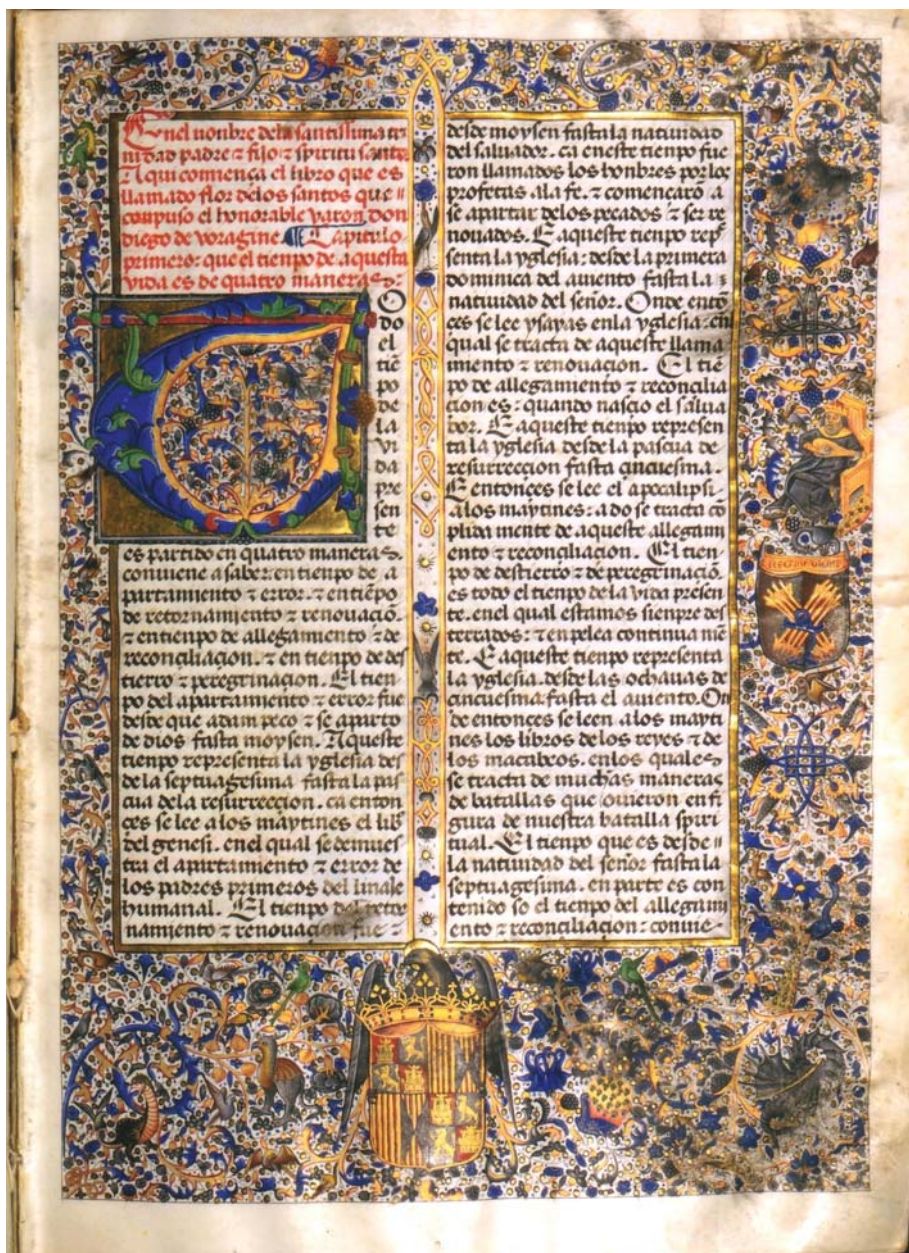 En el nonbre dela santissima tri
nidad padre ⁊ fijo ⁊ spiritu santo.
Aqui comiença el libro que es
llamado flor delos santos que
conpuso el honorable varon don
diego de voragine. Capitulo
primero: que el tienpo de aquesta
vida es de quatro maneras:
TO
do
el
tiē
po
de
la
vi
da
pre
sen
te
es partido en quatro maneras.
conuiene a saber: en tienpo de a
partamiento ⁊ error. ⁊ en tiēpo
de retornamiento ⁊ renouaciō
⁊ en tienpo de allegamiento ⁊ de
reconciliacion. ⁊ en tienpo de des
tierro ⁊ peregrinacion. El tien
po del apartamiento ⁊ error fue
desde que adam peco ⁊ se aparto
de dios fasta moysen. Aqueste
tienpo representa la yglesia des
de la septuagesima fasta la pas
cua dela resurreccion. ca enton
ces se lee alos maytines el lib̄
del genesi. enel qual se demues
tra el apartamiento ⁊ error de
los padres primeros del linaje
humanal. El tienpo del retor
namiento ⁊ renouacion fue ⁊
desde moysen fasta la natiuidad
del saluador. ca eneste tienpo fue
ron llamados los honbres por los
profetas ala fe. ⁊ començarō a
se apartar delos pecados ⁊ ser re
nouados. E aqueste tienpo rep̄
senta la yglesia: desde la primera
dominica del auiento fasta la
natiuidad del señor. Onde entō
ces se lee ysayas enla yglesia: en
qual se tracta de aqueste llama
miento ⁊ renouacion. El tiē
po de allegamiento ⁊ reconcilia
cion es: quando nascio el salua
dor. E aqueste tienpo represen
ta la yglesia desde la pascua de
resurreccion fasta cinquesma.
E entonces se lee el apocalipsi
alos maytines: a do se tracta cō
plida mente de aqueste allegam
ento ⁊ reconciliacion. El tien
po de destierro ⁊ de peregrinaciō.
es todo el tienpo de la vida presen
te. enel qual estamos sienpre des
terrados: ⁊ en pelea continua mē
te. E aqueste tienpo representa
la yglesia. desde las ochauas de
cinquesma fasta el auiento. On
de entonces se leen alos mayti
nes los libros de los reyes ⁊ de
los macabeos. enlos quales
se tracta de muchas maneras
de batallas que ouieron en fi
gura de nuestra batalla spiri
tual. El tienpo que es desde
la natiuidad del señor fasta la
septuagesima. en parte es con
tenido so el tienpo del allegami
ento ⁊ reconciliacion: conuie